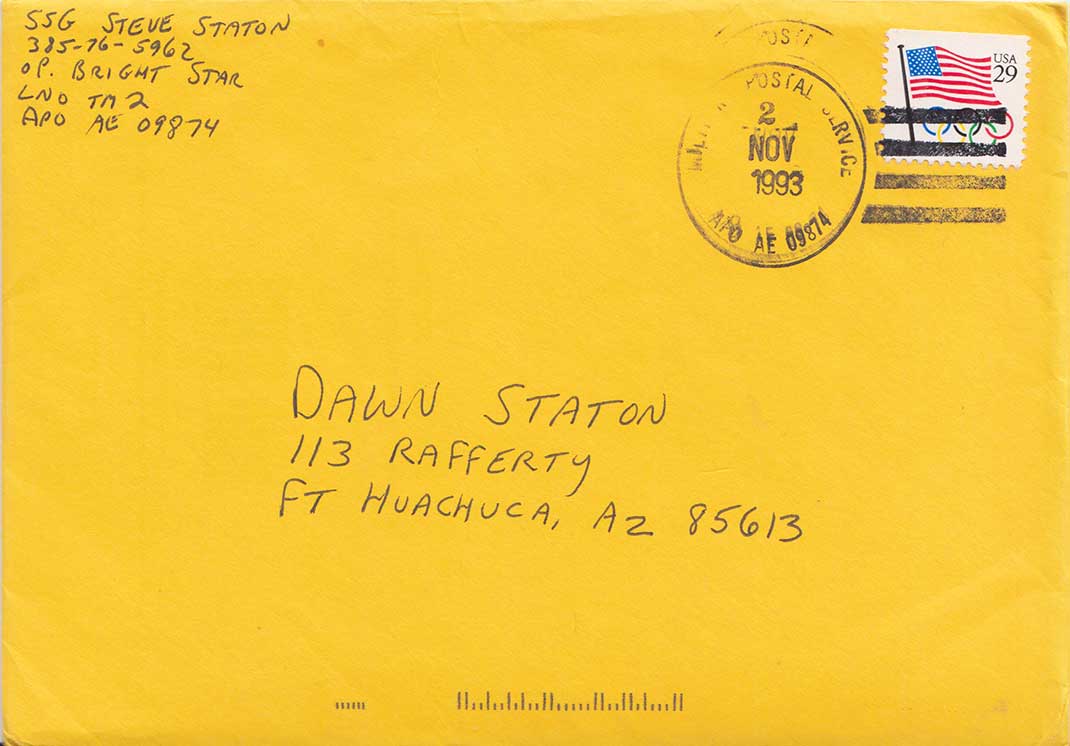 SSG STEVE STATON
385-76-5962
OP. BRIGHT STAR
LNO TM 2
APO AE 09874
POSTAL SERVICE
2
NOV
1993
APO AE 09874
USA
29
DAWN STATON
113 RAFFERTY
FT HUACHUCA, AZ 85613